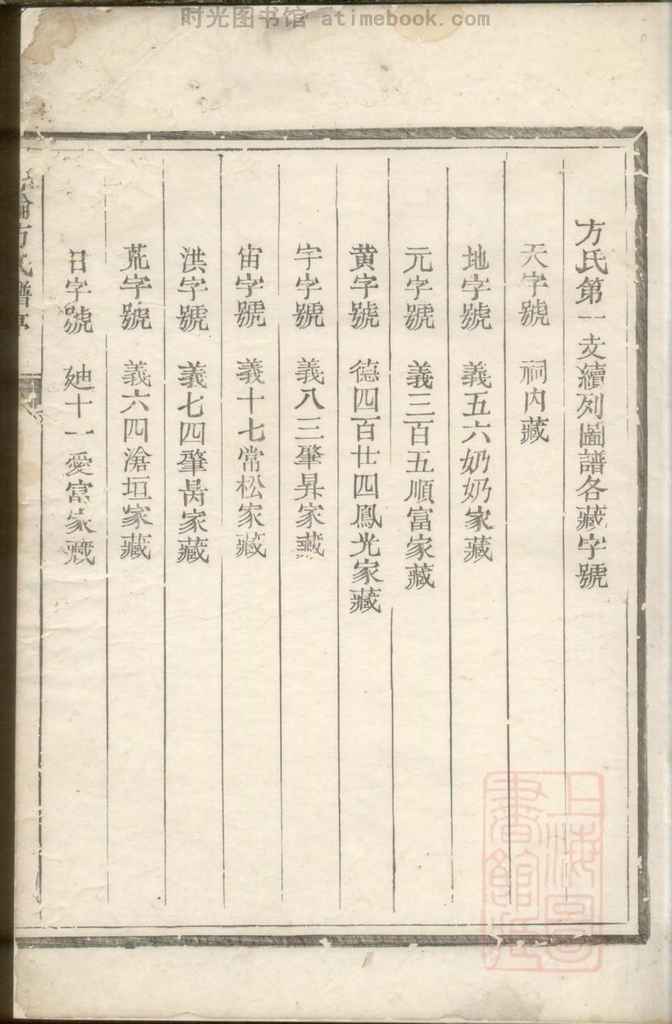 时光图书馆 atimebook.com
方氏第一支續列圖譜各藏字號
天字號 祠内藏
地字號 義五六奶奶家藏
元字號 義三百五順富家藏
黄字號 德四百廿四鳳光家藏
宇字號 義八三肇昇家藏
宙字號 義十七常松家藏
洪字號 義七四肇 家藏
荒字號 義六四滄垣家藏
日字號 十一愛富家藏
方氏譜
上海圖書館藏